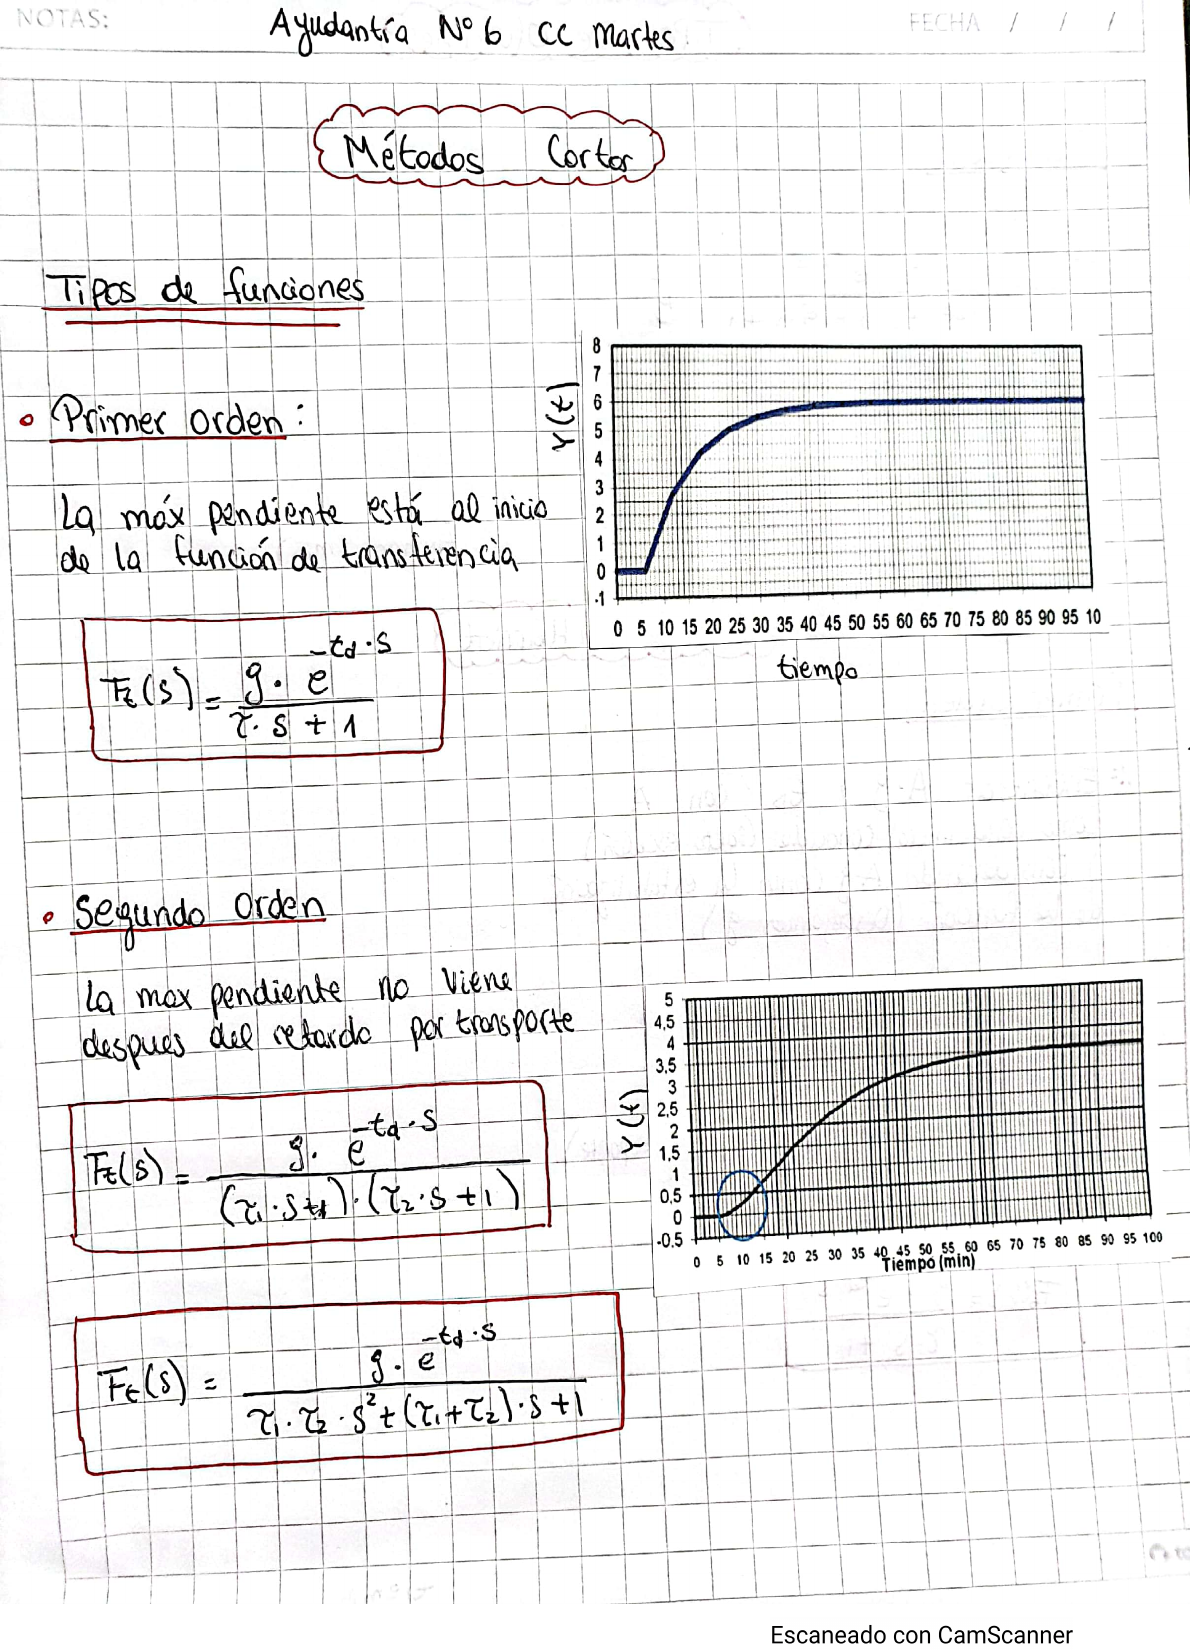 NOTAS:
Ayudantía N° 6 CC Martes
FECHA / / /
Métodos Cortos
Tipos de funciones
• Primer orden:
La máx pendiente está al inicio
de la función de transferencia
Ft(s) = g · e^(-td·s)
τ · s + 1
Y(t)
8
7
6
5
4
3
2
1
0
-1
0 5 10 15 20 25 30 35 40 45 50 55 60 65 70 75 80 85 90 95 10
tiempo
• Segundo Orden
La max pendiente no viene
despues del retardo por transporte
Ft(s) = g · e^(-td·s)
(τ1·s+1)·(τ2·s+1)
Y(t)
5
4,5
4
3,5
3
2,5
2
1,5
1
0,5
0
-0.5
0 5 10 15 20 25 30 35 40 45 50 55 60 65 70 75 80 85 90 95 100
Tiempo (min)
Ft(s) = g · e^(-td·s)
τ1·τ2·s²+(τ1+τ2)·s+1
Escaneado con CamScanner